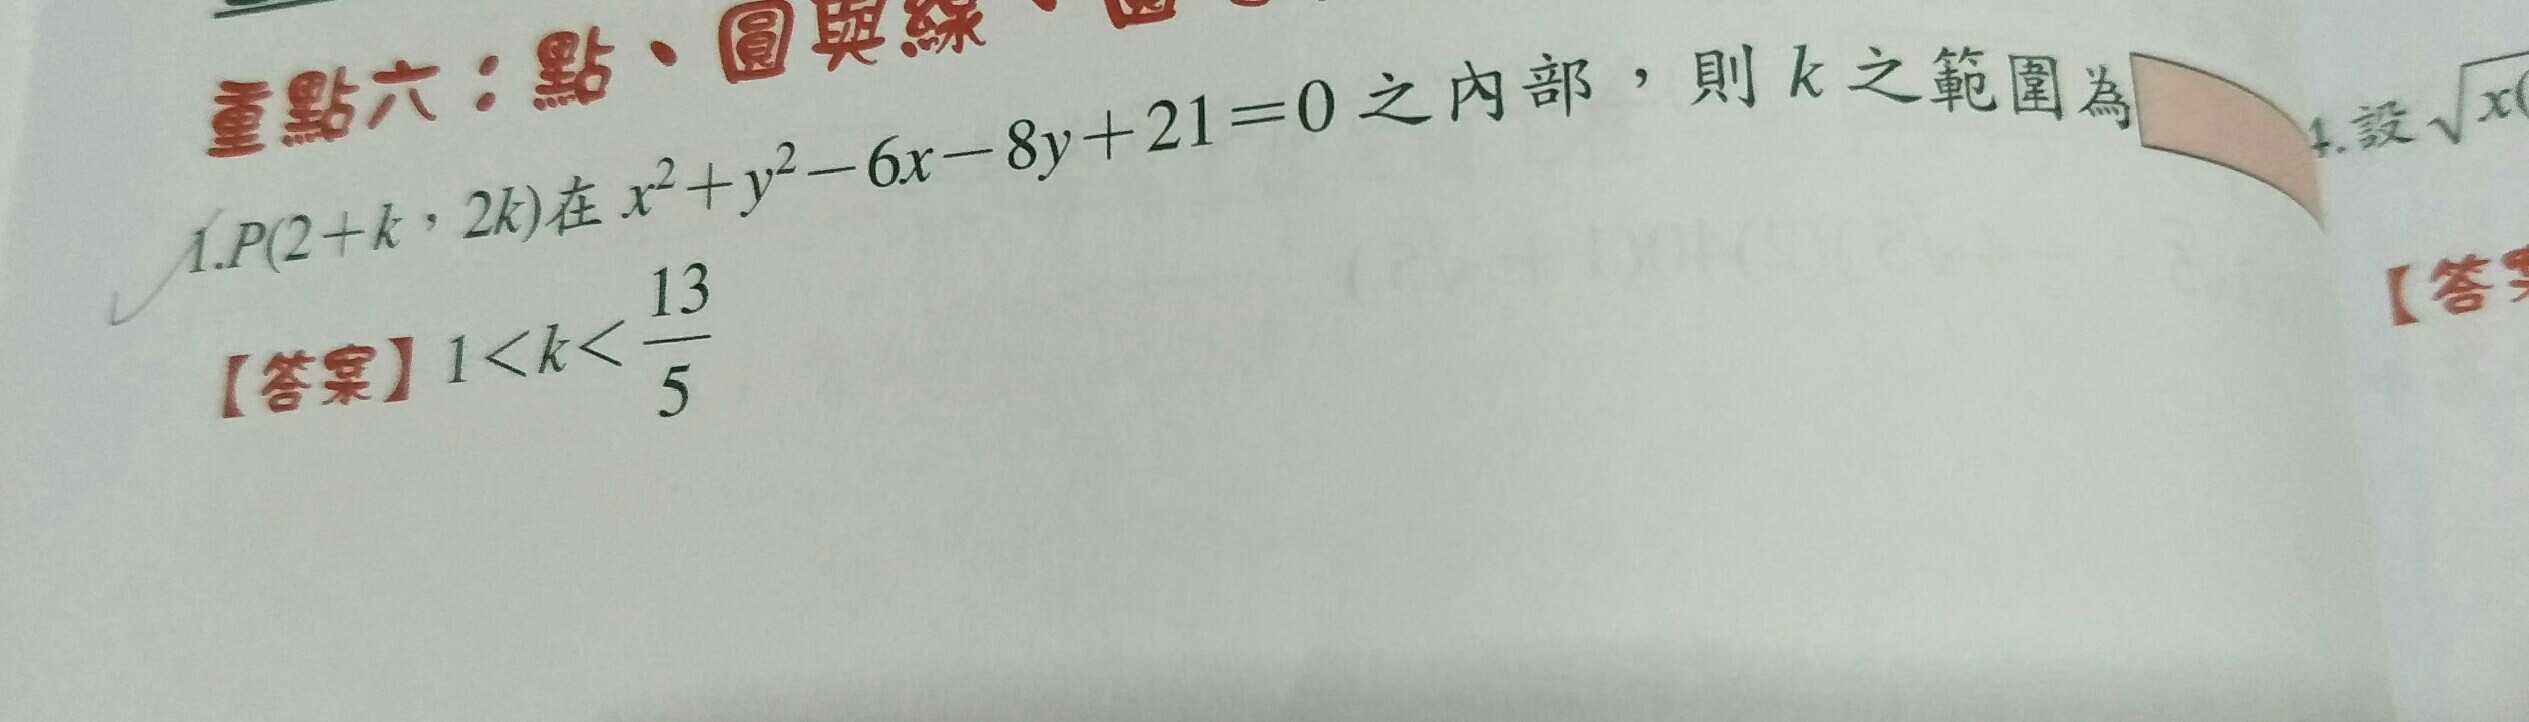 重點六：點、圓與線、圓
1.P(2+k，2k)在 x²+y²−6x−8y+21=0 之內部，則 k 之範圍為
【答案】1<k<13/5
4.設√x(
【答案